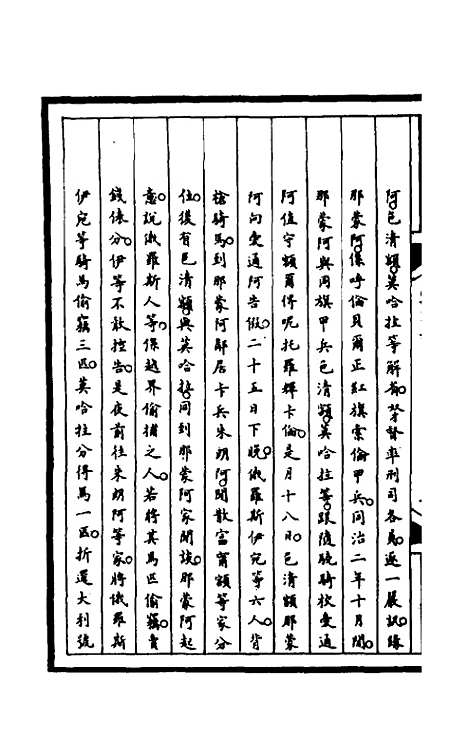 阿色清額莫哈拉等解省奴才督率刑司各員逐一嚴訊緣
那蒙阿係呼倫貝爾正紅旗索倫甲兵同治二年十月間
那蒙阿與同旗甲兵色清額莫哈拉等跟隨驍騎校愛通
阿值守額爾得呢托羅輝卡倫是月十八日色清額那蒙
阿向愛通阿告假二十五日下晚俄羅斯伊宛等六人背
槍騎馬到那蒙阿鄰居卡兵朱朗阿閒散富甯額等家分
住後有色清額與莫哈拉同到那蒙阿家閒談那蒙阿起
意說俄羅斯人等係越界偷捕之人若將其馬匹偷竊賣
錢俵分伊等不敢控告是夜前往朱朗阿等家將俄羅斯
伊宛等騎馬偷竊三匹莫哈拉分得馬一匹折還大利號